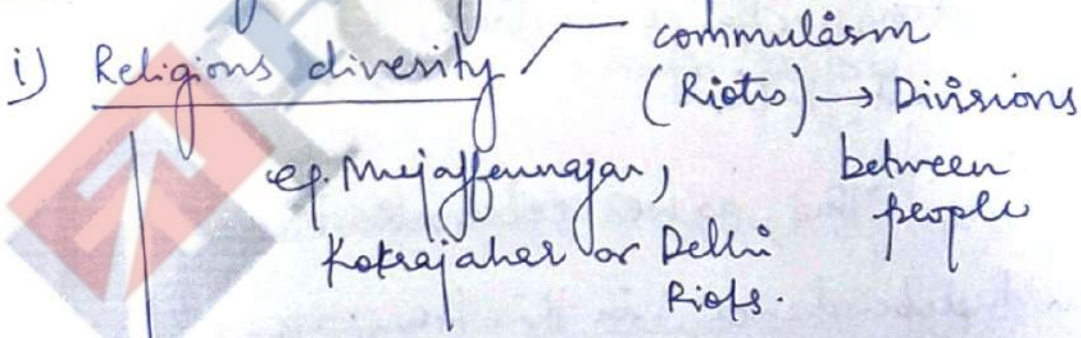 i) Religions diversity commulism
(Riots) → Divisions
between
people
eg. Mujaffarnagar,
Kokrajahar or Delhi
Riots.